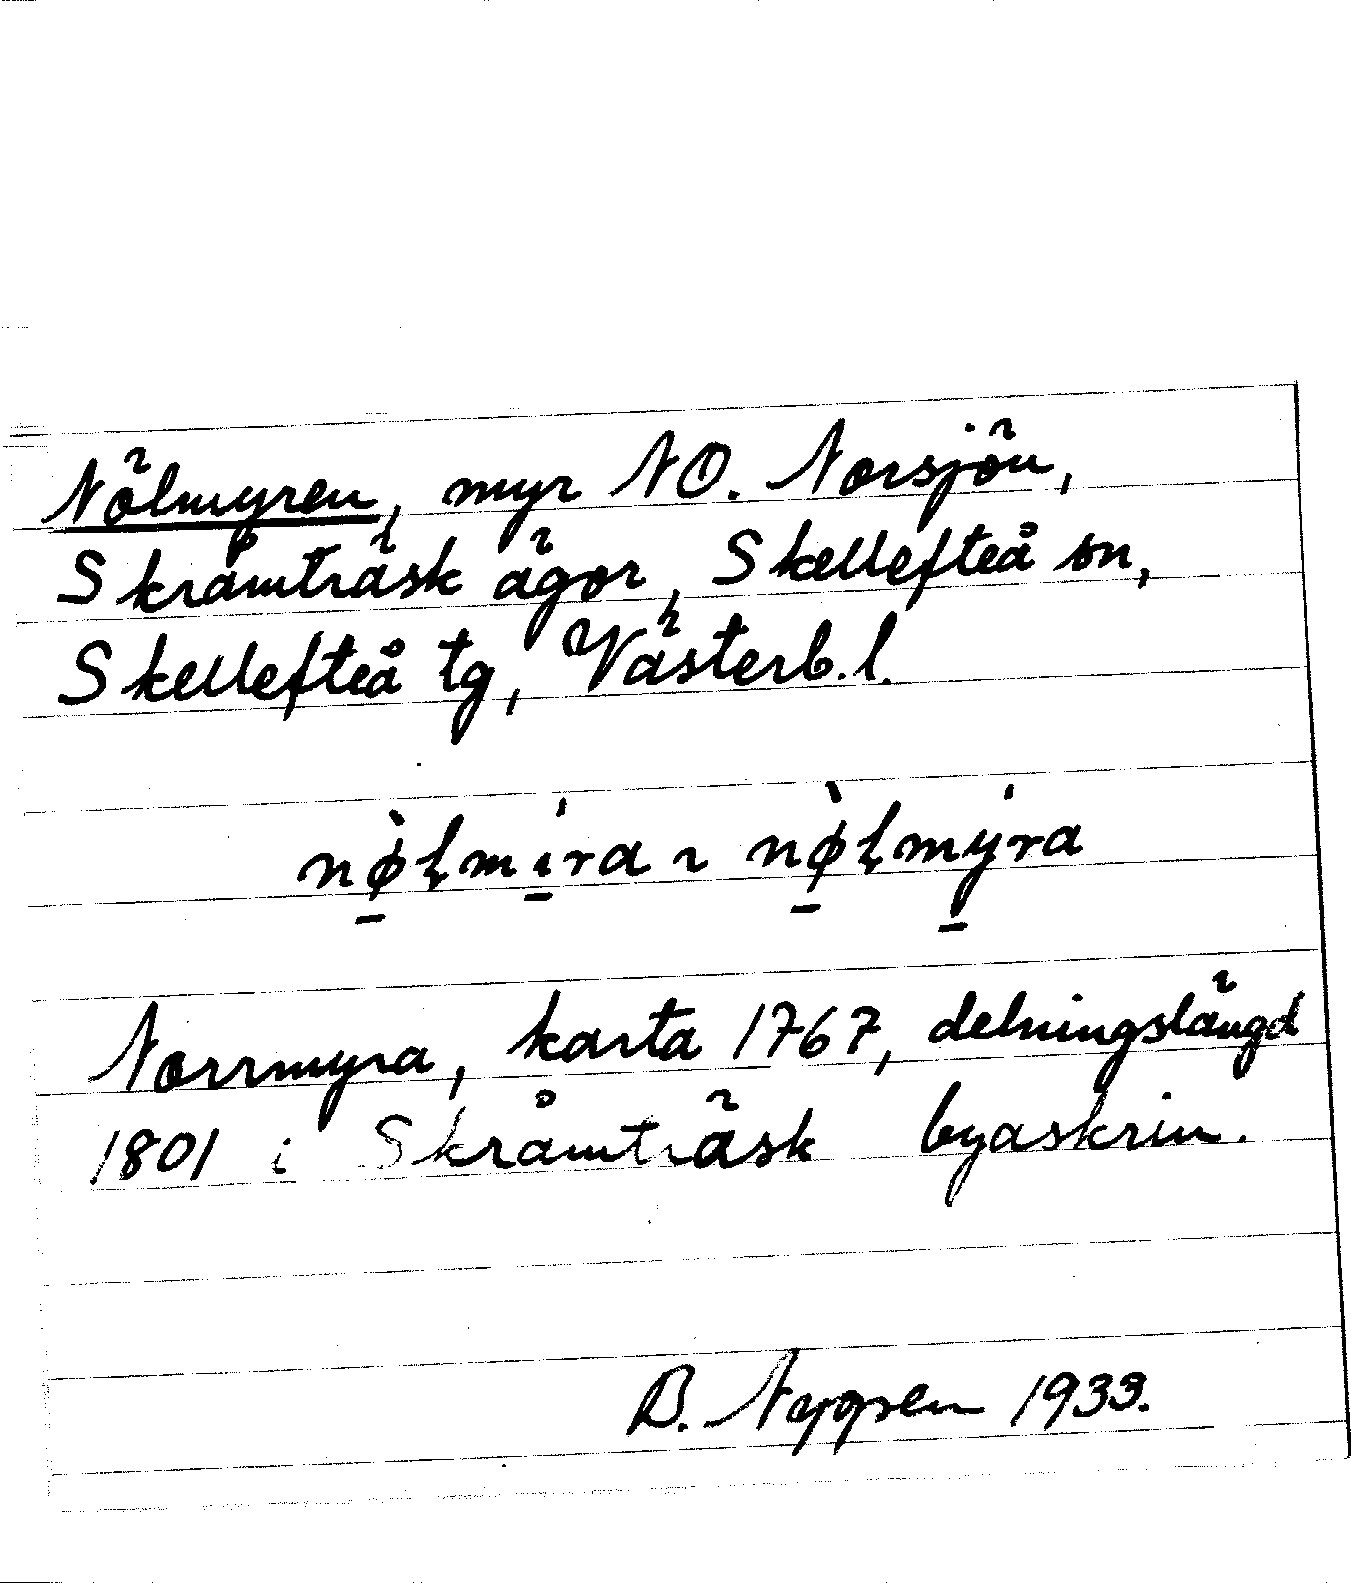 Nölmyren, myr NO. Norsjön,
Skråmträsk ägor, Skellefteå sn,
Skellefteå tg, Västerb. l.
nø̀lmíra ~ nø̀lmýra
Norrmyra, karta 1767, delningslängd
1801 i Skråmträsk byaskrin.
B. 1933.